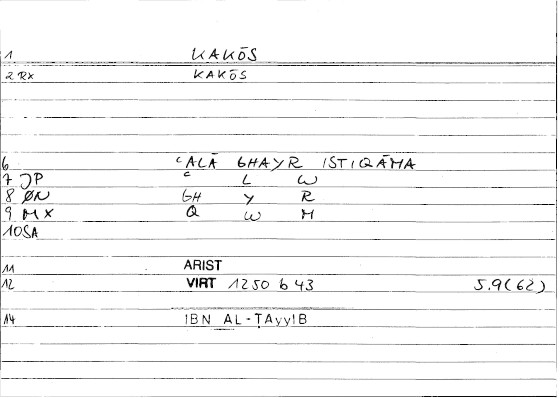 1 KAKŌS
2 RX KAKŌS
6 ʿALĀ GHAYR ISTIQĀMA
7 JP ʿ L W
8 ØN GH Y R
9 MX Q W M
10 SA
11 ARIST
12 VIRT 1250 b 43 5.9(62)
14 IBN AL-ṬAyyIB